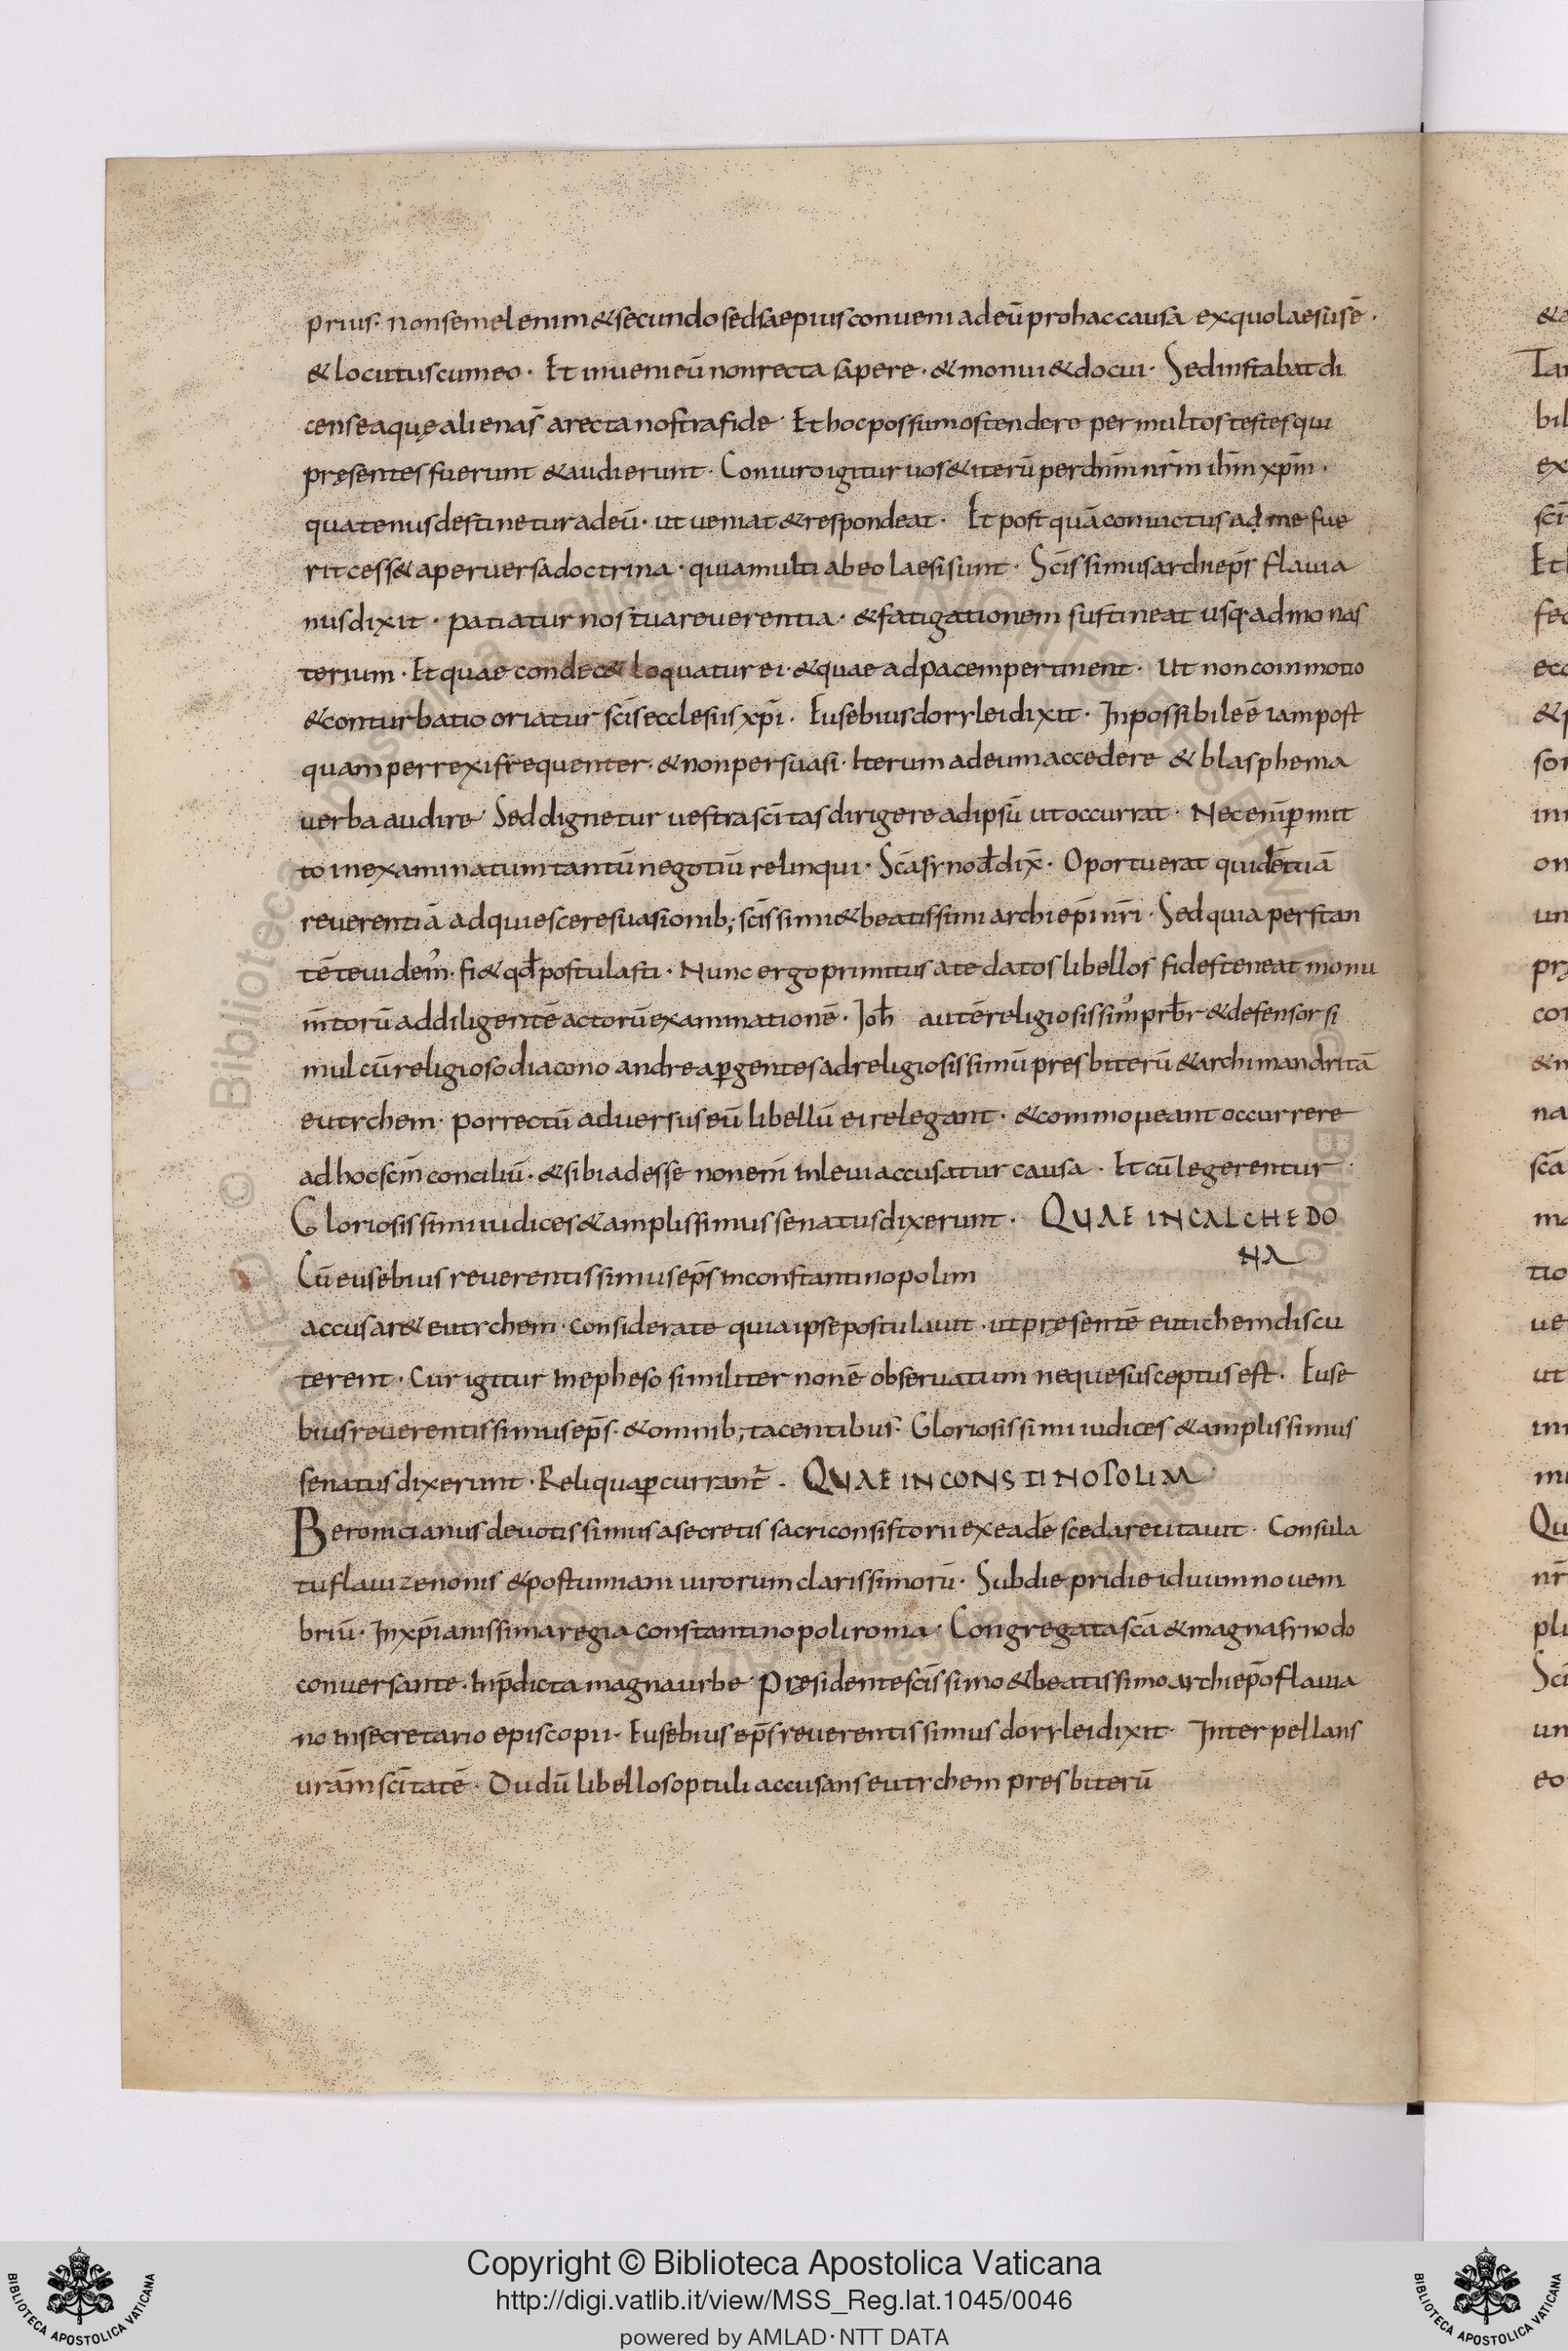 prius· non semel enim & secundo sed saepius conueni ad eū pro hac causa ex quo laesus ē·
& locutus cum eo· Et inueni eū non recta sapere· & monui & docui· Sed instabat di
cens ea quę aliena s̄ a recta nostra fide· Et hoc possum ostendere per multos testes qui
pręsentes fuerunt & audierunt· Coniuro igitur uos & iterū per dn̄m nr̄m ihm̄ xpm̄·
quatenus destinetur ad eū· ut ueniat & respondeat· Et post quā conuictus ad me fue
rit cess& a peruersa doctrina· quia multi ab eo laesi sunt· Sc̄issimus archiep̄s flauia
nus dixit· patiatur nos tua reuerentia· & fatigationem sustineat usq· ad monas
terium· Et quae condec& loquatur ei· & quae ad pacem pertinent· Ut non commotio
& conturbatio oriatur sc̄is ecclesiis xp̄i· Eusebius dorylei dixit· Inpossibile ē iam post
quam perrexi frequenter· & non persuasi· Iterum ad eum accedere & blasphema
uerba audire· Sed dignetur uestra sc̄itas dirigere ad ipsū ut occurrat· Nec enī ꝑmit
to inexaminatum tantū negotiū relinqui· Sc̄a synod̄ dix̄· Oportuerat quidē tuā
reuerentiā adquiescere suasionib; sc̄issimi & beatissimi archiep̄i nr̄i· Sed quia perstan
tē te uidem᾽· fi& qđ postulasti· Nunc ergo primitus a te datos libellos fides teneat monu
m̄torū ad diligentē actorū examinationē· Joh̄ autē religiosissim᾽ prb̄r & defensor si
mul cū religioso diacono andrea ꝑgentes ad religiosissimū presbiterū & archimandritā
eutychem· porrectū aduersus eū libellū ei relegant· & commoueant occurrere
ad hoc sc̄m conciliū· & sibi adesse non enī in leui accusatur causa· Et cū legerentur·
Gloriosissimi iudices & amplissimus senatus dixerunt· QUAE IN CALCHEDO
NA
Cū eusebius reuerentissimus ep̄s in constantinopolim
accusar& eutychem· considerate quia ipse postulauit· ut pręsentē eutichem discu
terent· Cur igitur in epheso similiter non ē obseruatum neque susceptus est· Euse
bius reuerentissimus ep̄s· & omnib; tacentibus· Gloriosissimi iudices & amplissimus
senatus dixerunt· Reliqua ꝑcurrant̄· QUAE IN CONSTINOPOLIM
Beronicianus deuotissimus a secretis sacri consistorii ex eadē sceda recitauit· Consula
tu flaui zenonis & postumiani uirorum clarissimorū· Sub die pridie iduum nouem
briū· In xp̄ianissima regia constantinopoli roma· Congregata sc̄a & magna synodo
conuersante· In p̄dicta magna urbe· Pręsidente sc̄issimo & beatissimo archiep̄o flauia
no in secretario episcopii· Eusebius ep̄s reuerentissimus dorylei dixit· Interpellans
ur̄am sc̄itatē· Dudū libellos optuli accusans eutychem presbiterū
Copyright © Biblioteca Apostolica Vaticana
http://digi.vatlib.it/view/MSS_Reg.lat.1045/0046
powered by AMLAD·NTT DATA
BIBLIOTECA APOSTOLICA VATICANA
BIBLIOTECA APOSTOLICA VATICANA